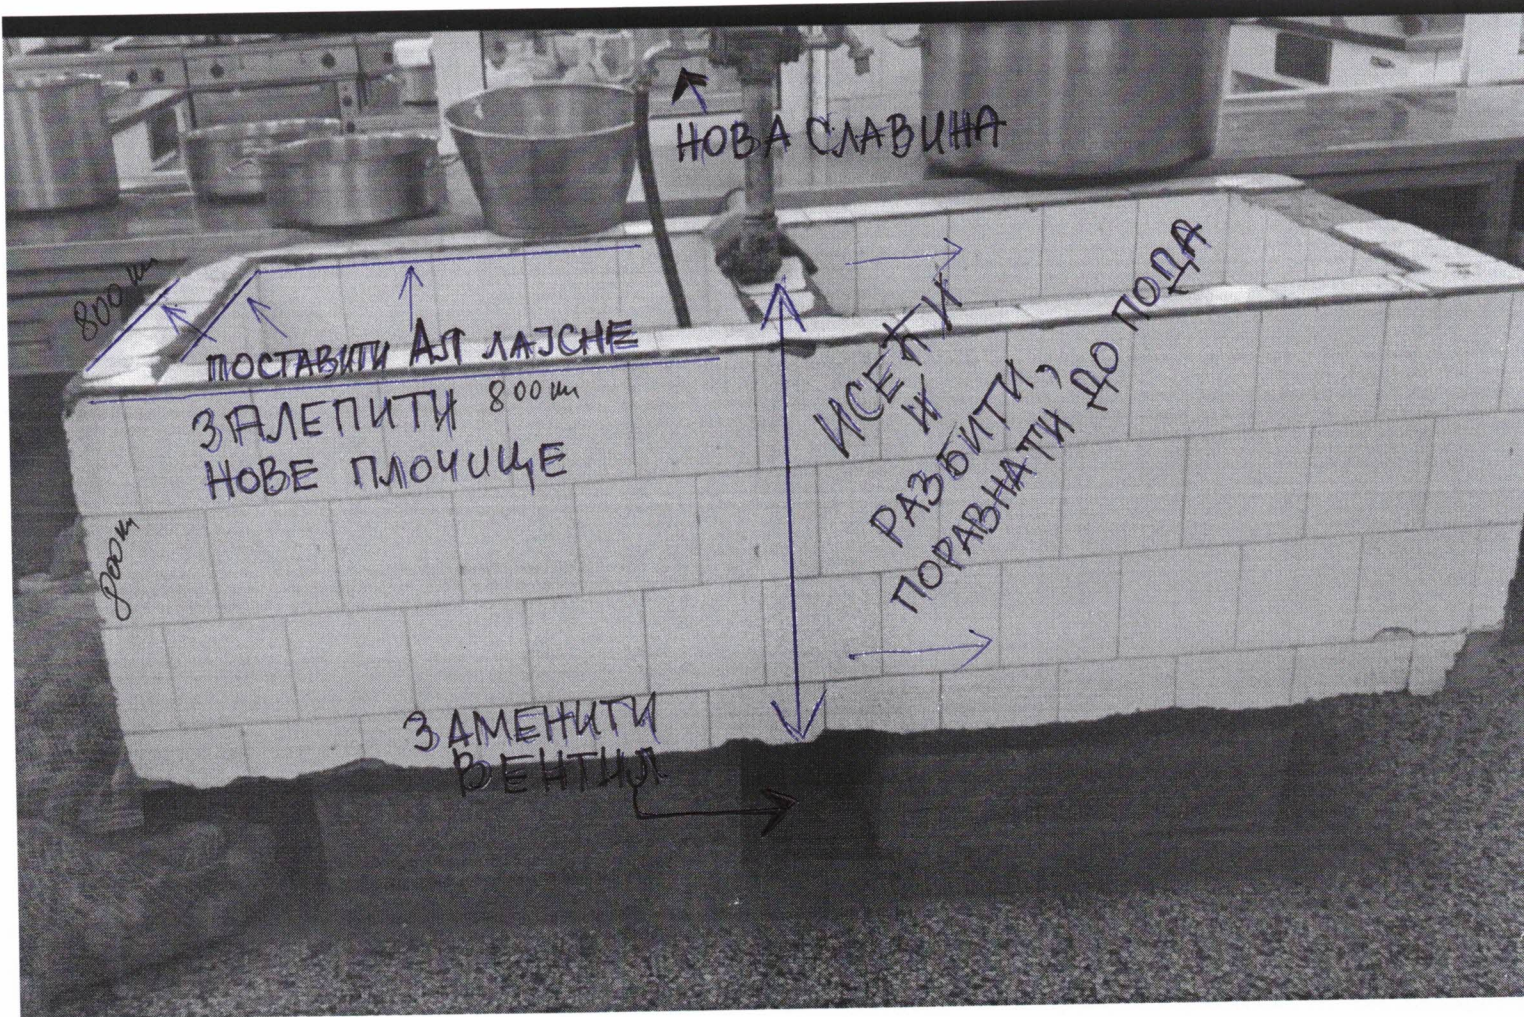 НОВА СЛАВИНА
800 mm
ПОСТАВИТИ АЛ ЛАЈСНЕ
ЗАЛЕПИТИ 800 mm
НОВЕ ПЛОЧИЦЕ
ИСЕЋИ
И
РАЗБИТИ,
ПОРАВНАТИ ДО ПОДА
800 mm
ЗАМЕНИТИ
ВЕНТИЛ